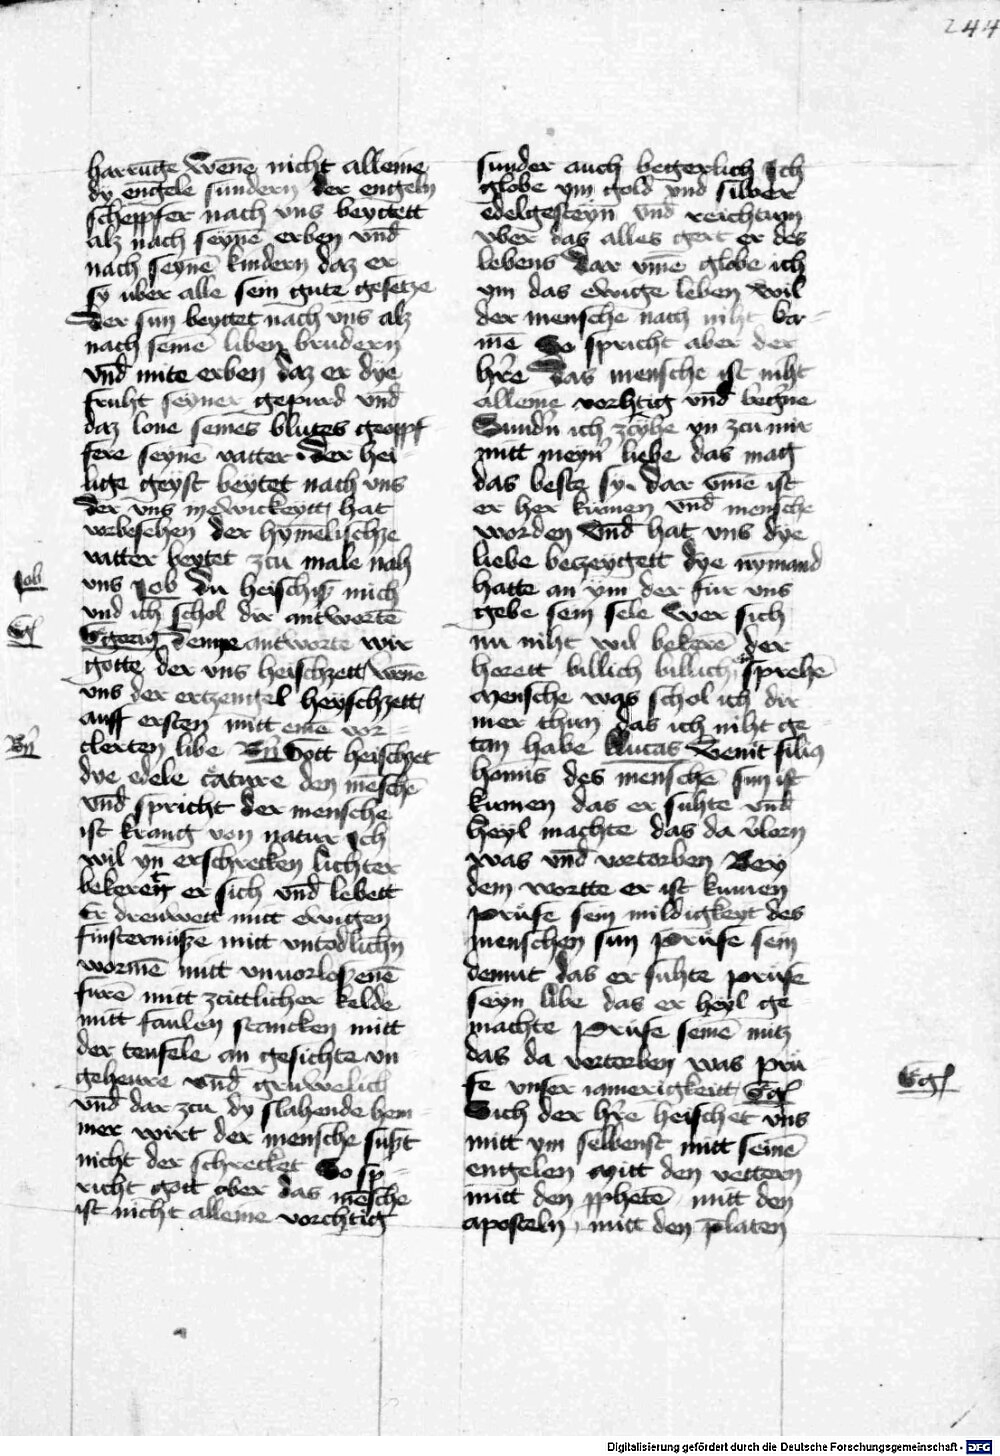 244
harrunge Wenē nicht alleine
dy engele sundern der engeln
scheppfer nach vns beyttett
alz nach seynē erben vnd̄
nach seynē kindern daz er
sy uber alle sein gute gesetze
Der sun beyttet nach vns alz
nach seinē liben brudern
vnd̄ mite erben daz er dye
fruht seyner gepurd vnd̄
daz lone seines blutes geoppf
fere seynē vatter · Der hei-
lige geyst beytet nach vns
Der vns inewickeytt hat
vorbesehen der hymelischze
vatter beytet zcu male nah
Job
vns Job Du heischist mich
vnd ich schol dir antwortē
Gg
Ggorig Denne antworte wir
gotte der vns heischzett Wenē
vns der ertzengel heyschzett
auff ersten mitt einē vor-
Bn̄
clerten libe Bn̄ Gott heischzet
dye edele catture den mēschē
vnd̄ spricht der mensche
ist krang von natur Ich
wil yn erschrecken lichter
bekerent er sich vnd̄ lebett
Er drenwett mitt ewigen
finsternüsze mitt vntodlichn̄
wormē mitt vnuorloszenē
furē mitt zcittlicher kelde
mitt faulen stancken mitt
der teufele an gesichte vn
geheure vnd̄ gruwelich
vnd̄ dar zcu dy slahende hem-
mer wirt der mensche sußt
nicht der schrecket So sp-
richt gott aber das mēsche
ist nicht alleine vorchtig
sunder auch begerlich Ich
globe ym gold vnd silber
edelgesteyn vnd̄ reichtum
vber das alles gert er des
lebens Dar vmē globe ich
ym das ewige leben wil
der mensche nach niht ko-
mē So spricht aber der
hr̄e Das mensche ist niht
alleine vorhtig vnd̄
Sundn̄ ich zcyhe yn zcu mir
mitt meyn̄ liebe das mag
das beste sy. dar vmē ist
er her kumen vnd̄ mensche
worden vnd̄ hat vns dye
liebe bezeygett dye nymand
hatte an ym der fur vns
gebe sein sele wer sich
nu niht wil bekerē der
herett billich billich sprehē
Mensche was schol ich dir
mer thun das ich niht ge
tan habe Lucas Venit filiꝰ
hoinis des menschē sun ist
kumen das er suhte vnd̄
heyl machte das da v̄lorn
was vnd̄ vortorben Bey
dem wortte er ist kumen
prufe sein mildigkeyt des
menschen sun prufe sein
demut das er suhte prufe
seyn libe das er heyl ge
machte prufe seinē nutz
das da vortorben was pru
fe vnser iamerigkeitt Gg
Gg
Sich der hr̄e heischet vns
mitt ym selbenst mitt seinē
engelen Mitt den vettern
mitt den pphetē mitt den
aposteln mitt den platen
Digitalisierung gefördert durch die Deutsche Forschungsgemeinschaft - DFG